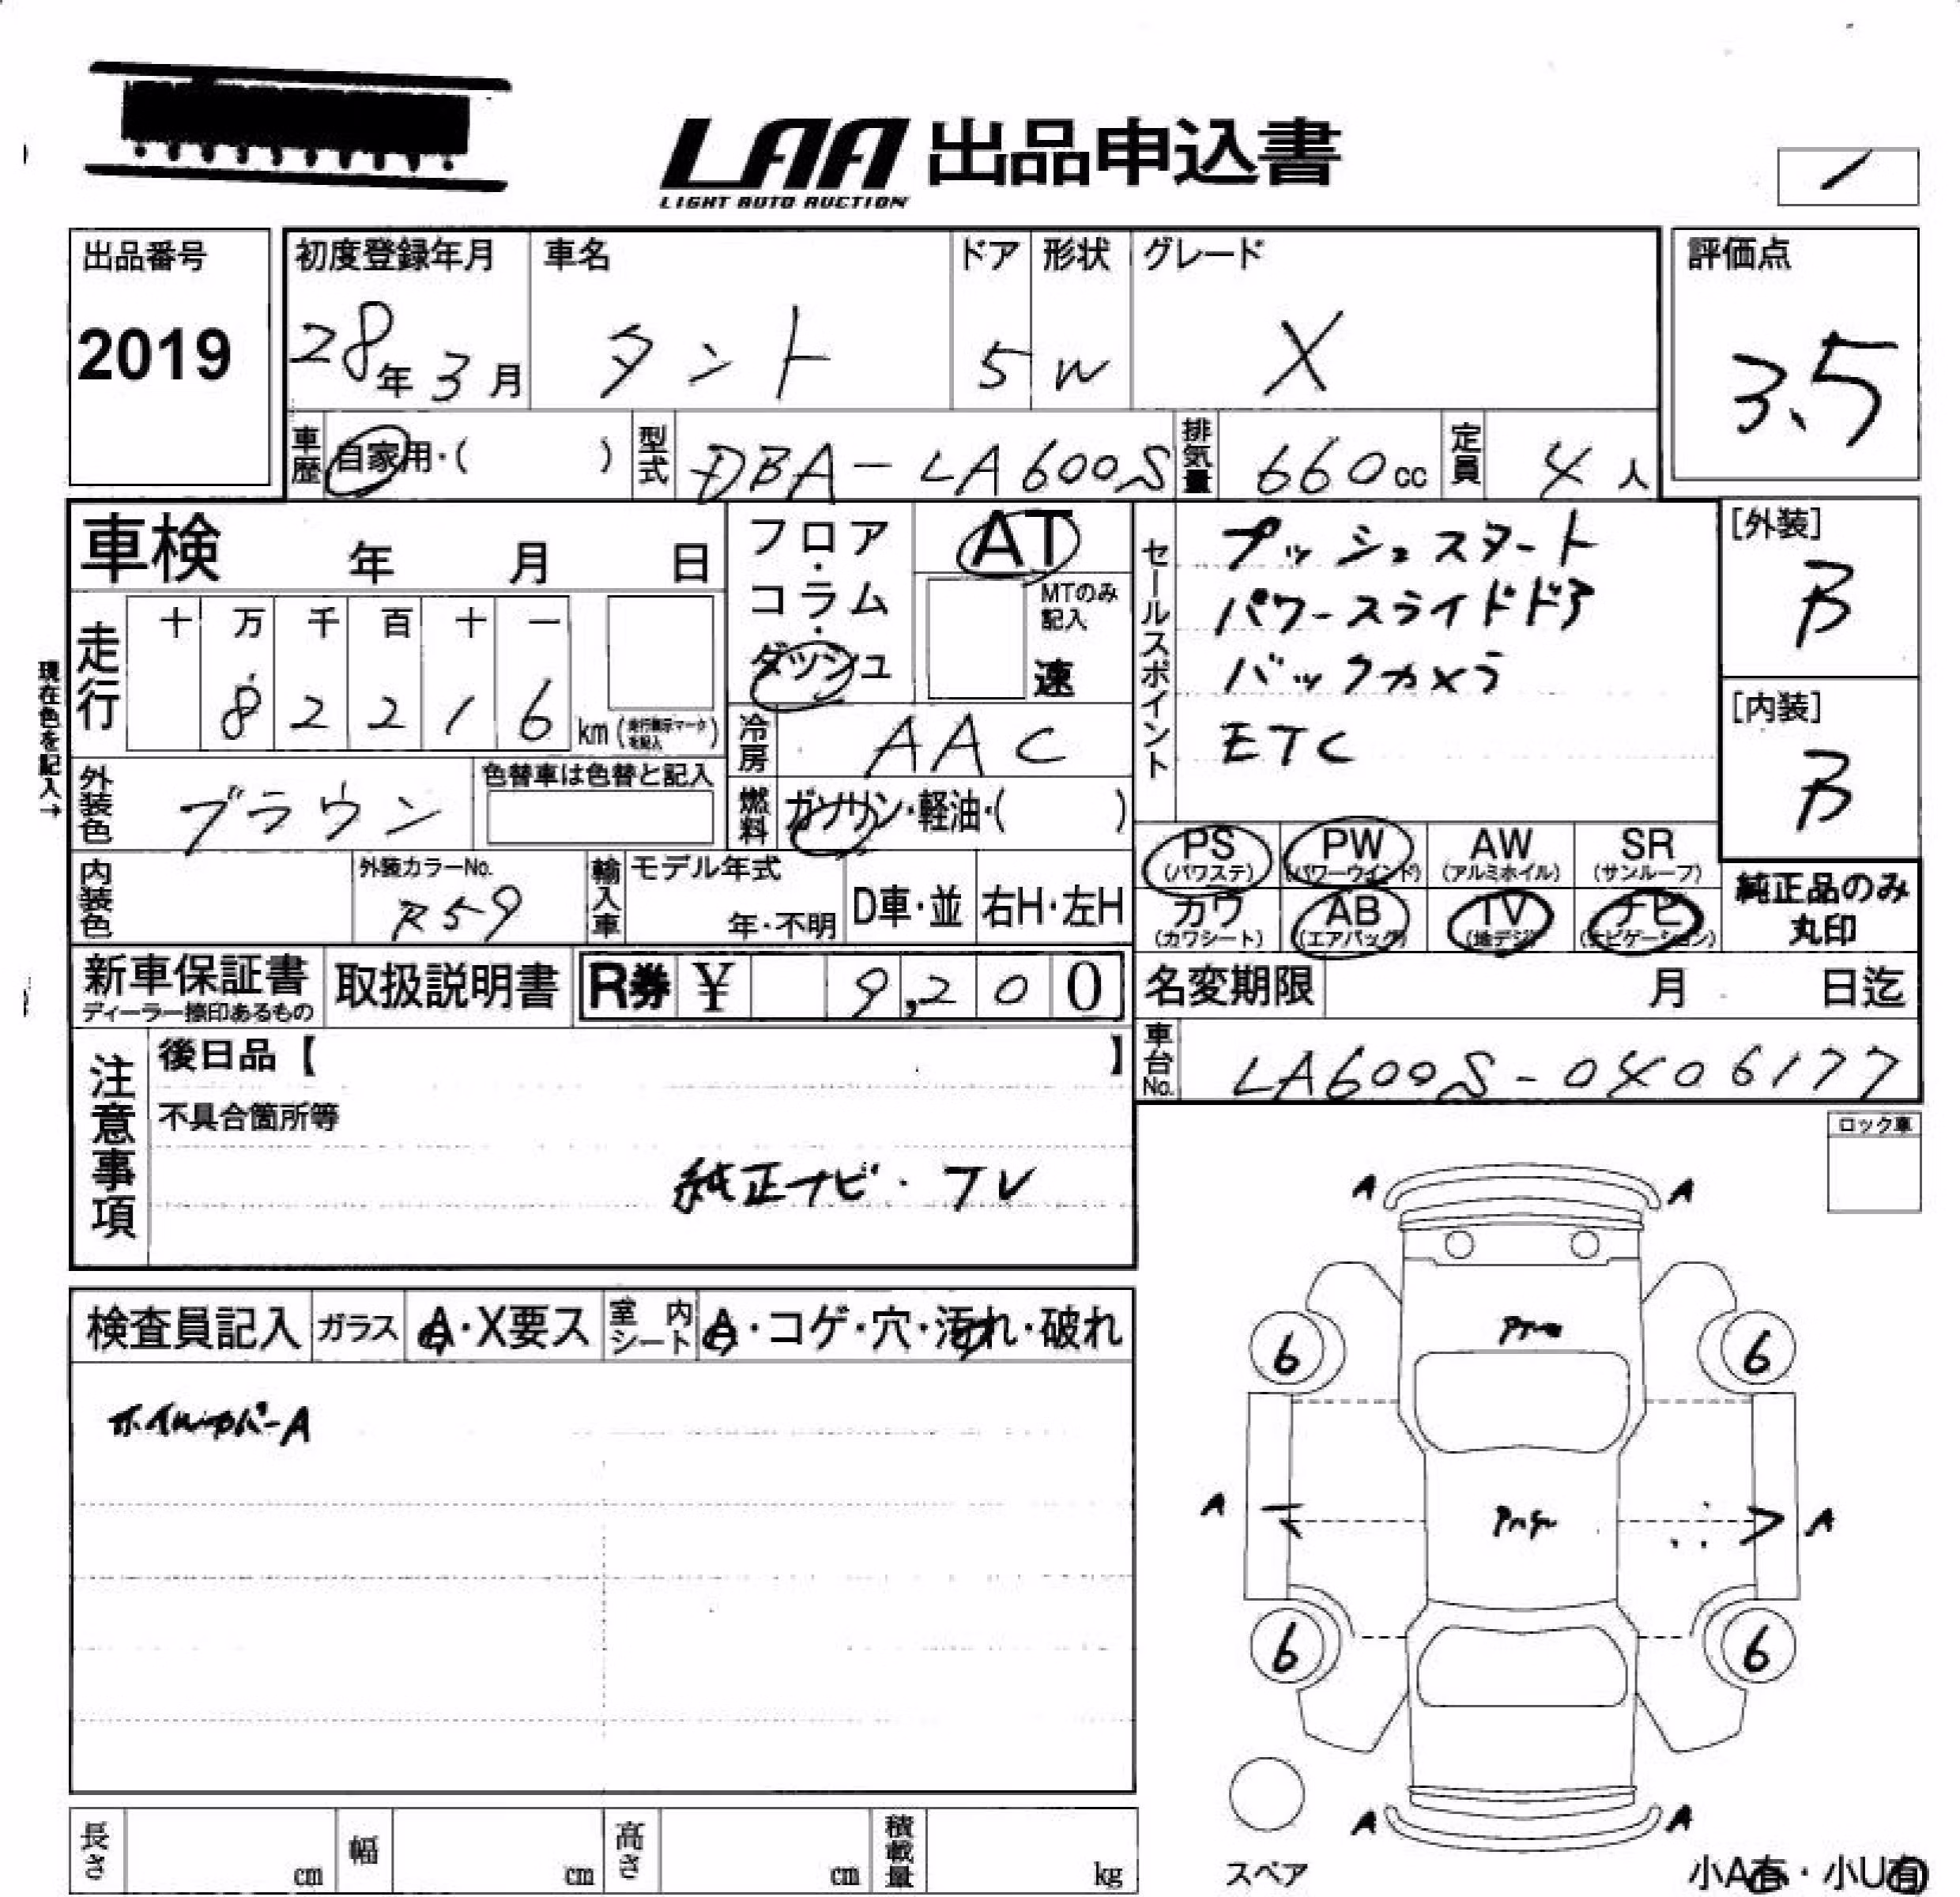 LAA 出品申込書
LIGHT AUTO AUCTION
出品番号
2019
初度登録年月
28年3月
車名
タント
ドア
5
形状
W
グレード
X
評価点
3.5
車歴
自家用・( )
型式
DBA-LA600S
排気量
660cc
定員
4人
車検 年 月 日
現在色を記入→
走行
十 万 千 百 十 一
8 2 2 1 6
km(走行表示マークを記入)
フロア・コラム・ダッシュ
AT
MTのみ記入
速
冷房
AAC
燃料
ガソリン・軽油・( )
セールスポイント
プッシュスタート
パワースライドドア
バックカメラ
ETC
[外装]
B
[内装]
B
外装色
ブラウン
色替車は色替と記入
内装色
外装カラーNo.
R59
輸入車
モデル年式
年・不明
D車・並
右H・左H
PS (パワステ)
PW (パワーウインド)
AW (アルミホイル)
SR (サンルーフ)
カワ (カワシート)
AB (エアバッグ)
TV (地デジ)
ナビ (ナビゲーション)
純正品のみ丸印
新車保証書
ディーラー捺印あるもの
取扱説明書
R券 ¥ 9,200
名変期限 月 日迄
車台No.
LA600S-0406177
注意事項
後日品【 】
不具合箇所等
純正ナビ・TV
ロック車
検査員記入
ガラス
A・X要ス
室内シート
A・コゲ・穴・汚れ・破れ
ホイルカバーA
A A
6 6
A A
6 6
A A
スペア
小A有・小U有
長さ cm
幅 cm
高さ cm
積載量 kg